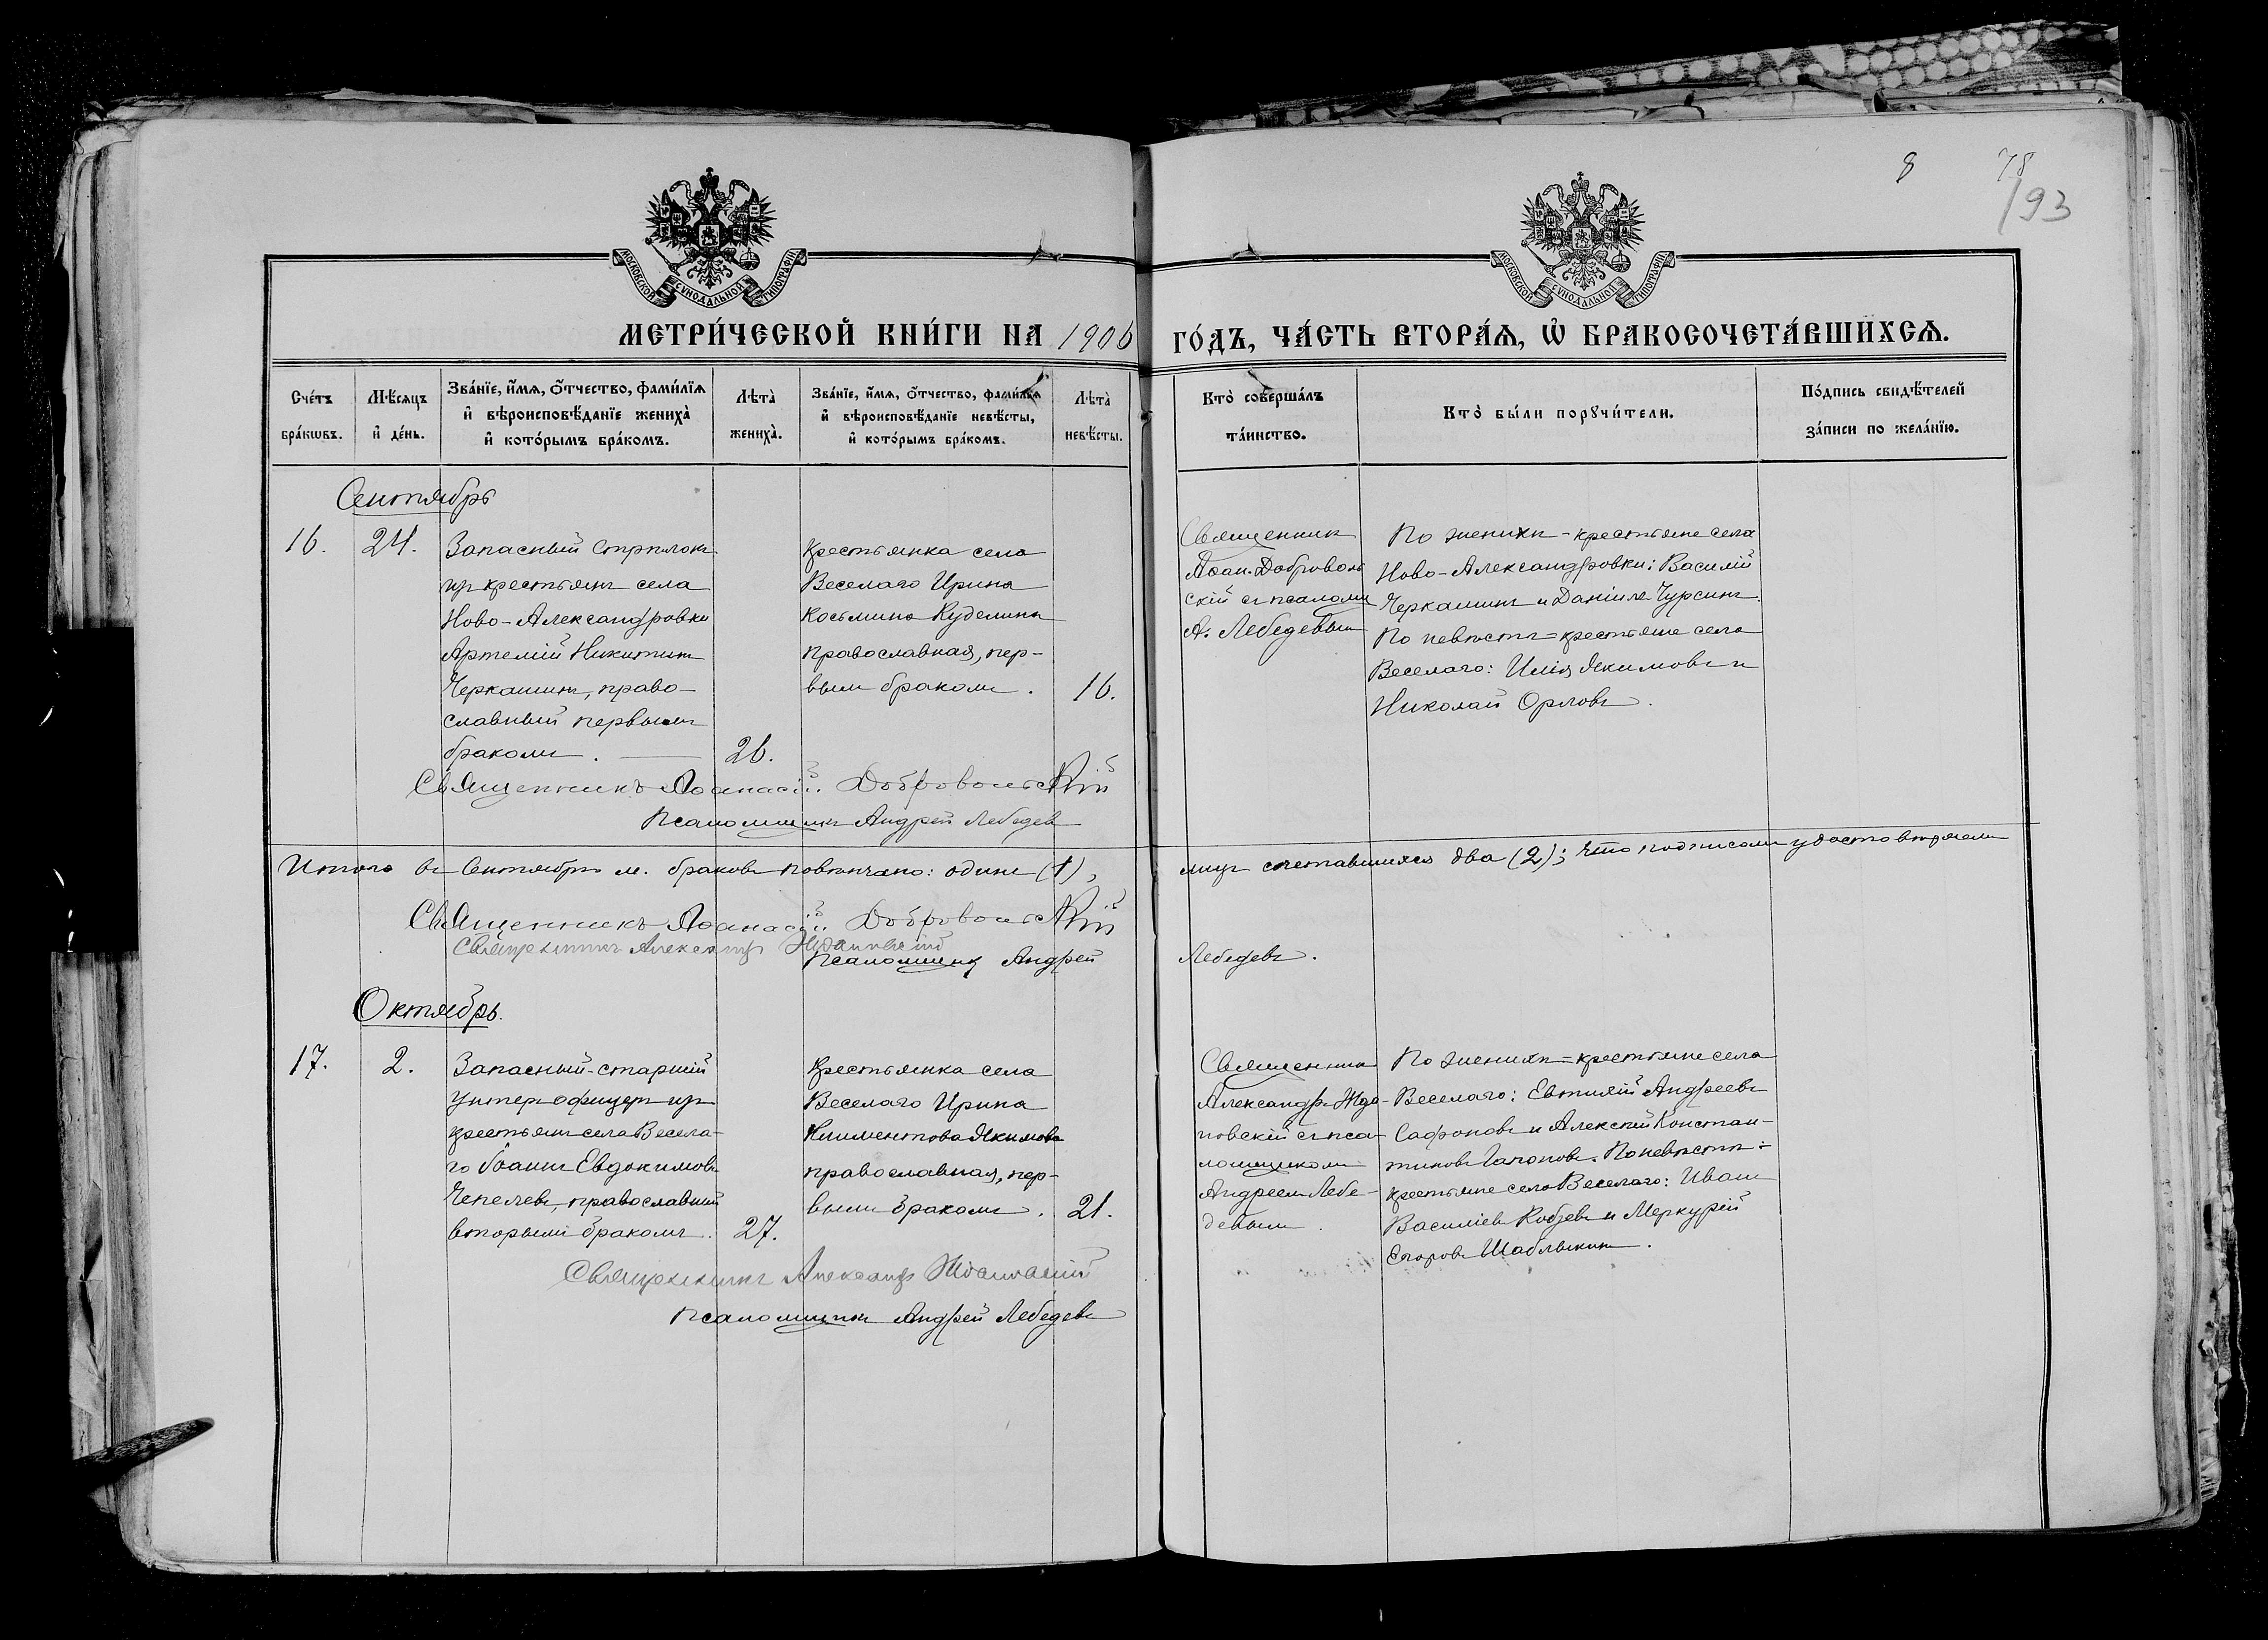 8 78
193
МОСКОВСКОЙ СѴНОДАЛЬНОЙ ТИПОГРАФІИ
МОСКОВСКОЙ СѴНОДАЛЬНОЙ ТИПОГРАФІИ
МЕТРИ́ЧЕСКОЙ КНИ́ГИ НА 1906 ГО́ДЪ, ЧА́СТЬ ВТОРА́Я, Ѡ БРАКОСОЧЕТА́ВШИХСѦ.
Сче́тъ бра́кѡвъ.
Мѣ́сяцъ и҆ де́нь.
Зва́нїе, и҆́мѧ, ѻ҆́тчество, фами́лїѧ и҆ вѣроисповѣ́данїе жениха̀ и҆ кото́рымъ бра́комъ.
Лѣта̀ жениха̀.
Зва́нїе, и҆́мѧ, ѻ҆́тчество, фами́лїѧ и҆ вѣроисповѣ́данїе невѣ́сты, и҆ кото́рымъ бра́комъ.
Лѣта̀ невѣ́сты.
Кто̀ соверша́лъ та́инство.
Кто̀ бы́ли порꙋчи́тели.
По́дпись свидѣ́телей за́писи по жела́нїю.
Сентябрь
16.
24.
Запасный стрѣлокъ
изъ крестьянъ села
Ново-Александровки
Артемій Никитинъ
Черкашинъ, право-
славный первымъ
бракомъ.
26.
Крестьянка села
Веселаго Ирина
Косьмина Куделина
православная, пер-
вымъ бракомъ.
16.
Священникъ
Аѳан. Доброволь
скій съ псаломщ
А. Лебедевымъ
По женихѣ - крестьяне села
Ново-Александровки: Василій
Черкашинъ и Даніилъ Чурсинъ.
По невѣстѣ = крестьяне села
Веселаго: Илія Якимовъ и
Николай Орловъ.
Священникъ Аѳанасій Добровольскій
Псаломщикъ Андрей Лебедев
Итого въ Сентябрѣ м. браковъ повѣнчано: одинъ (1), лицъ сочетавшихся два (2); что подписомъ удостовѣряемъ
Священникъ Аѳанасій Добровольскій
Священникъ Александръ Ждановскій
Псаломщикъ Андрей Лебедевъ.
Октябрь.
17.
2.
Запасный-старшій
унтеръ офицеръ изъ
крестьянъ села Весела-
го Іоаннъ Евдокимовъ
Чепелевъ, православный
вторымъ бракомъ.
27.
Крестьянка села
Веселаго Ирина
Климентова Якимова
православная, пер-
вымъ бракомъ.
21.
Священникъ
Александръ Жда-
новскій съ пса-
ломщикомъ
Андреемъ Лебе-
девымъ.
По женихѣ = крестьяне села
Веселаго: Евтихій Андреевъ
Сафоновъ и Алексѣй Констан-
тиновъ Гапоновъ. По невѣстѣ =
крестьяне села Веселаго: Иванъ
Василіевъ Кобзевъ и Меркурій
Егоровъ Шаблыкинъ.
Священникъ Александръ Ждановскій
Псаломщикъ Андрей Лебедевъ